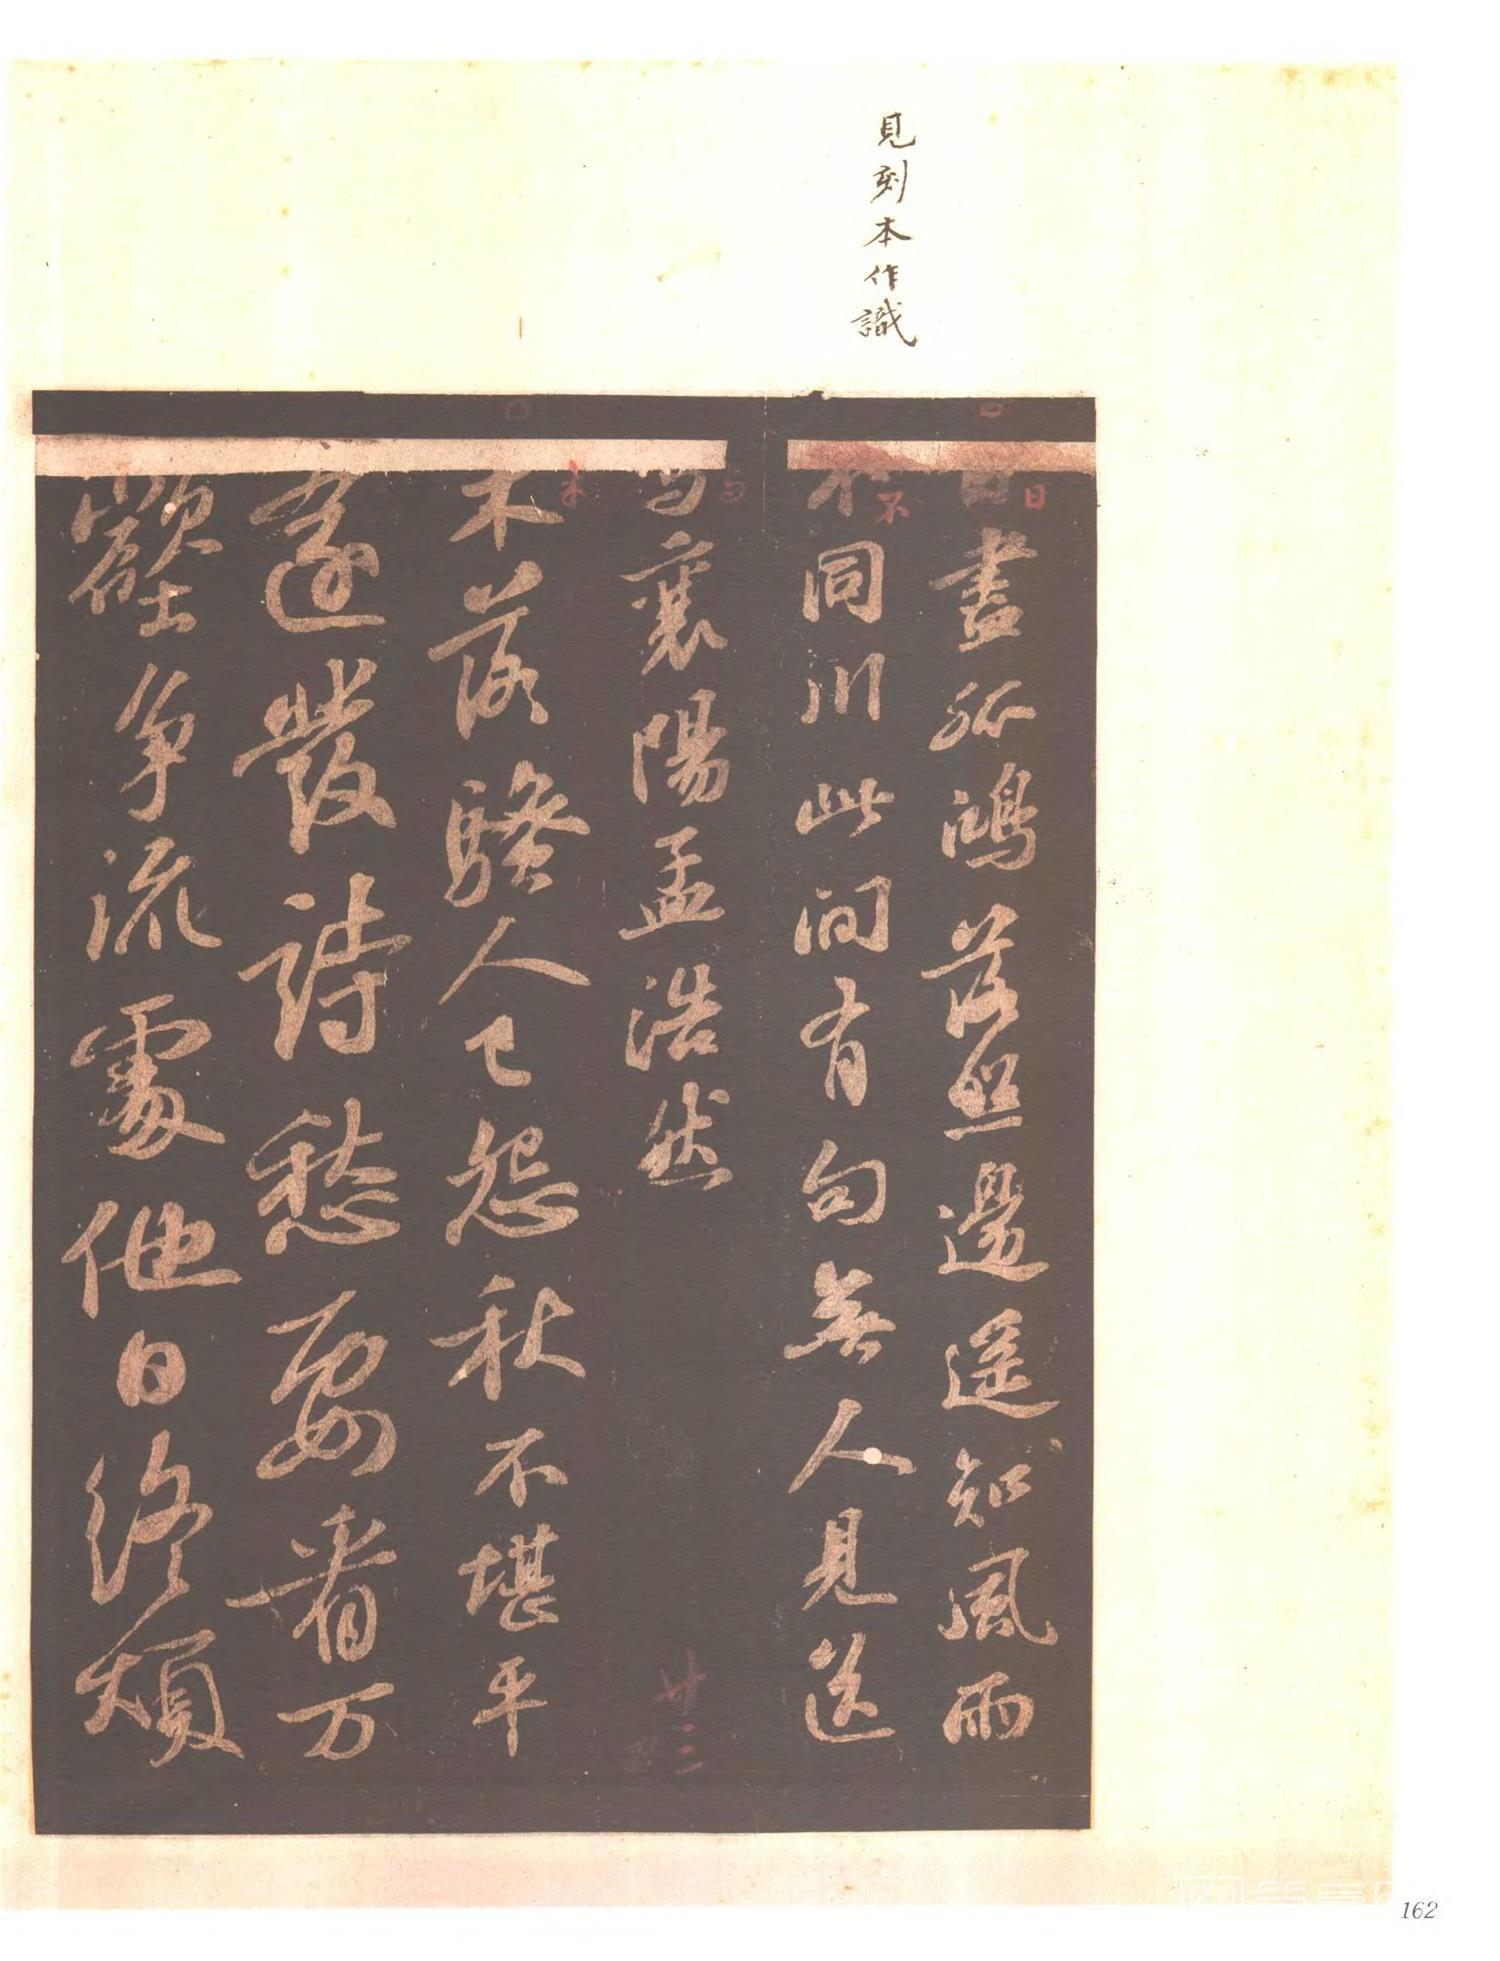 見刻本作識
日盡孤鴻落照邊遥知風雨
不同川此間有句無人見送
與襄陽孟浩然
木落騷人已怨秋不堪平
遠發詩愁要看万
壑争流處他日終煩
日
不
木
廿三
162